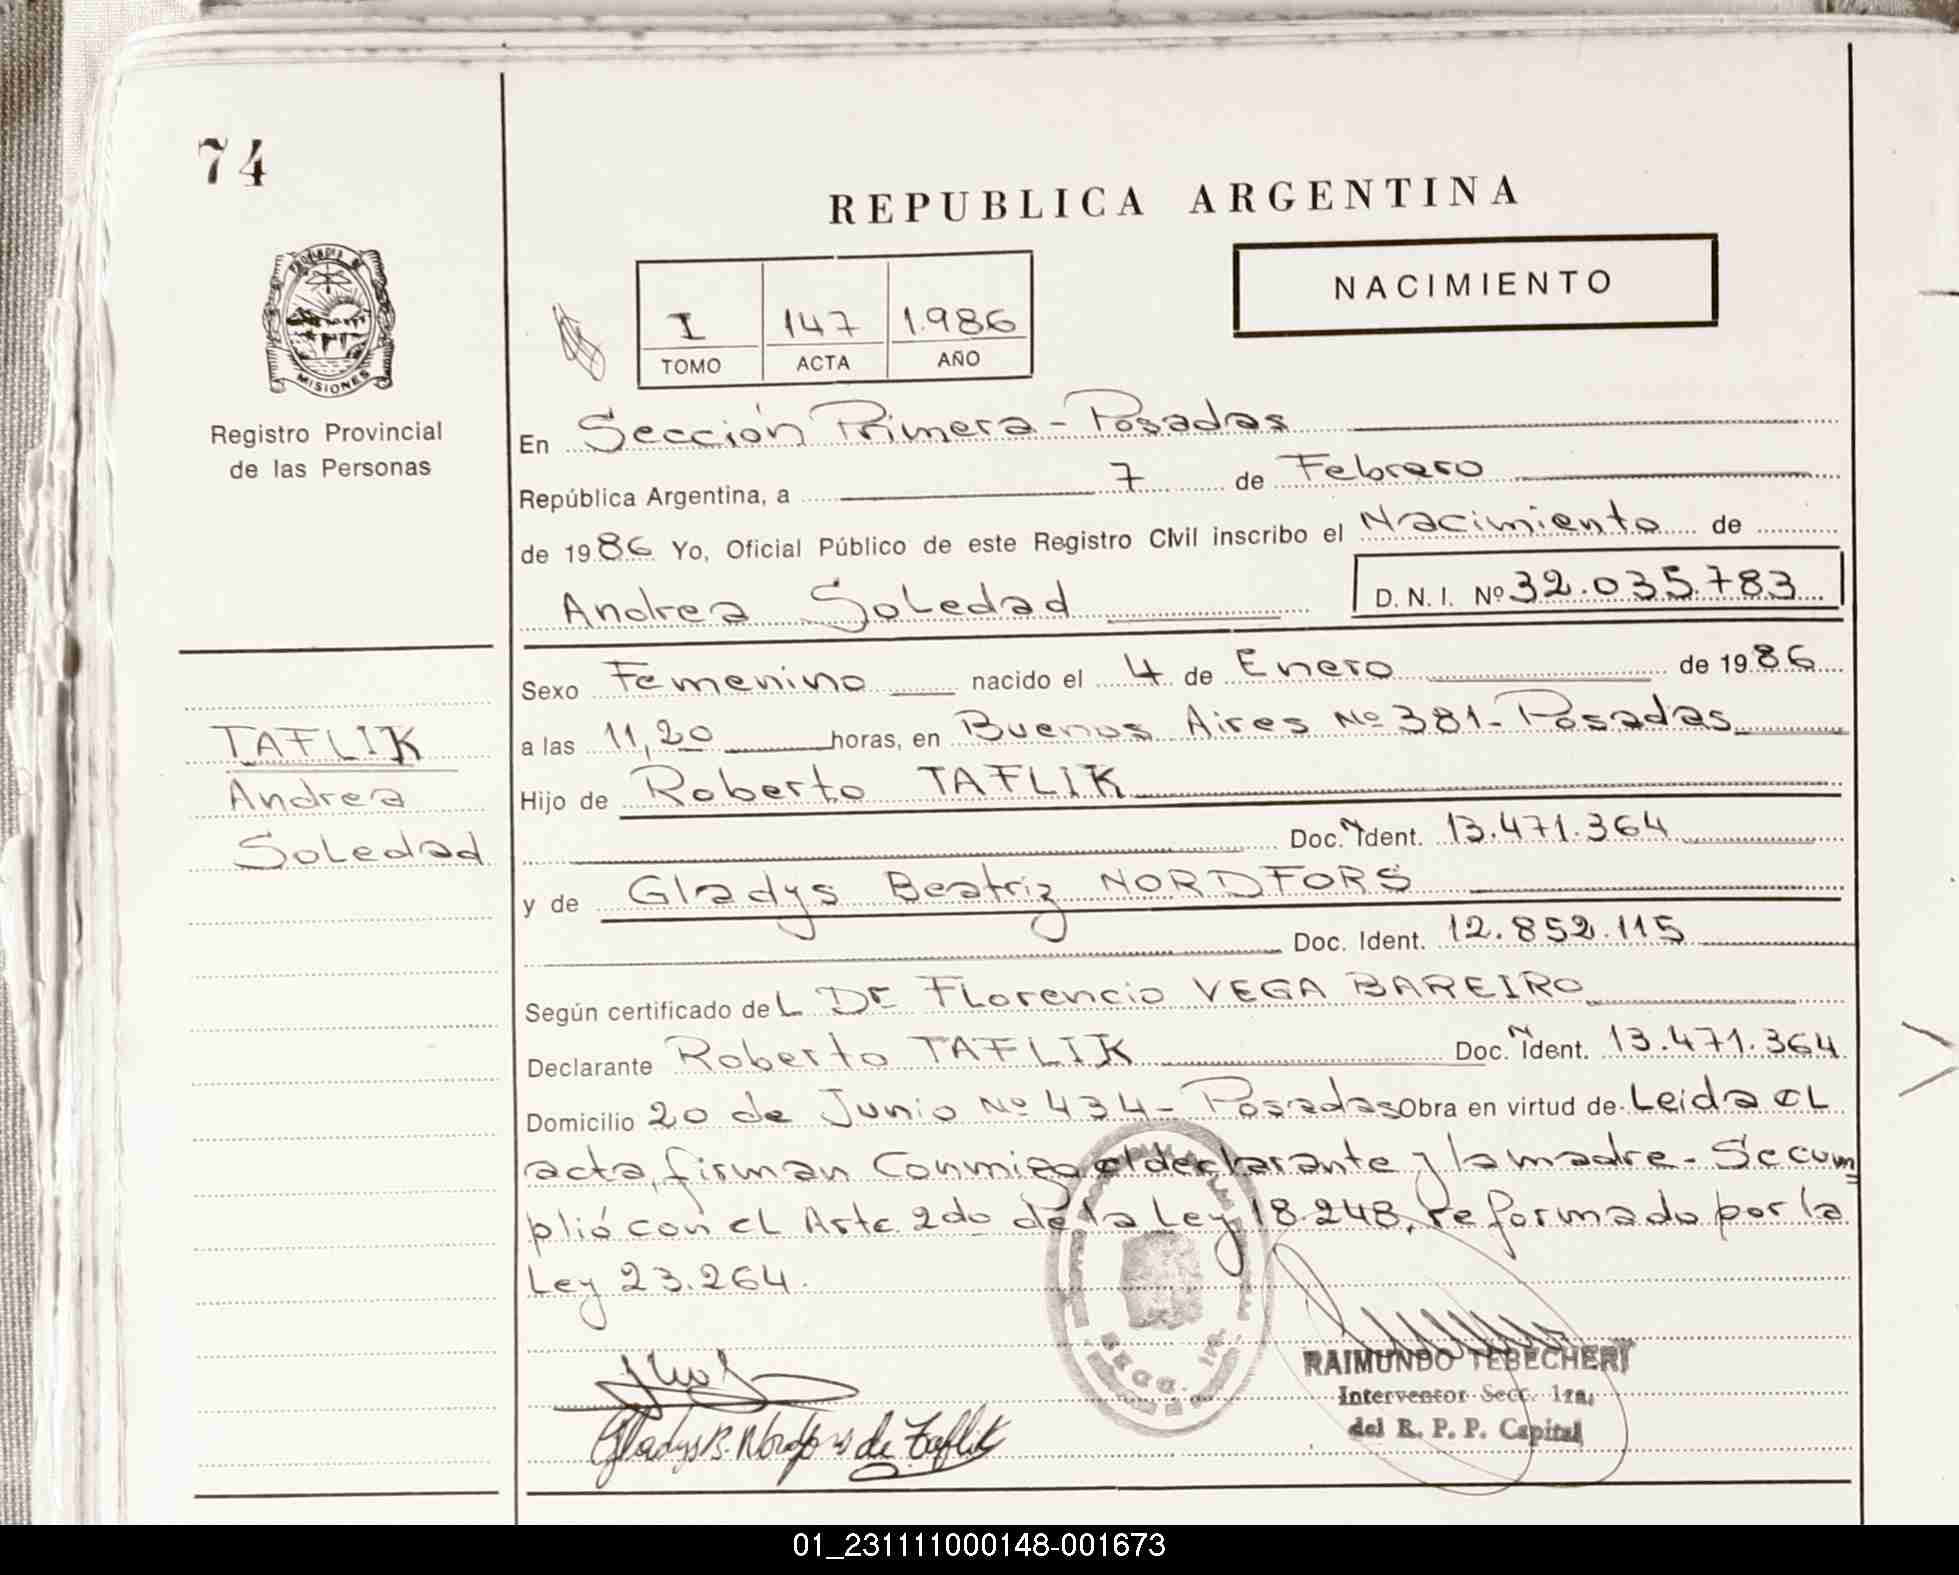 74
REPUBLICA ARGENTINA
NACIMIENTO
I 147 1.986
TOMO ACTA AÑO
PROVINCIA DE
MISIONES
Registro Provincial
de las Personas
En Sección Primera - Posadas
República Argentina, a 7 de Febrero
de 1986 Yo, Oficial Público de este Registro Civil inscribo el Nacimiento de
Andrea Soledad D.N.I. Nº 32.035.783
TAFLIK
Andrea
Soledad
Sexo Femenino nacido el 4 de Enero de 1986
a las 11,20 horas, en Buenos Aires Nº 381 - Posadas
Hijo de Roberto TAFLIK
Doc. Ident. 13.471.364
y de Gladys Beatriz NORDFORS
Doc. Ident. 12.852.115
Según certificado del Dr Florencio VEGA BAREIRO
Declarante Roberto TAFLIK Doc. Ident. 13.471.364
Domicilio 20 de Junio Nº 434 - Posadas Obra en virtud de Leida el
acta, firman conmigo el declarante y la madre - Se cum=
plió con el Arte. 2do de la Ley 18.248, reformado por la
Ley 23.264.
RAIMUNDO TEBECHERY
Interventor Secc. 1ra.
del R. P. P. Capital
Gladys B. Nordfors de Taflik
01_231111000148-001673